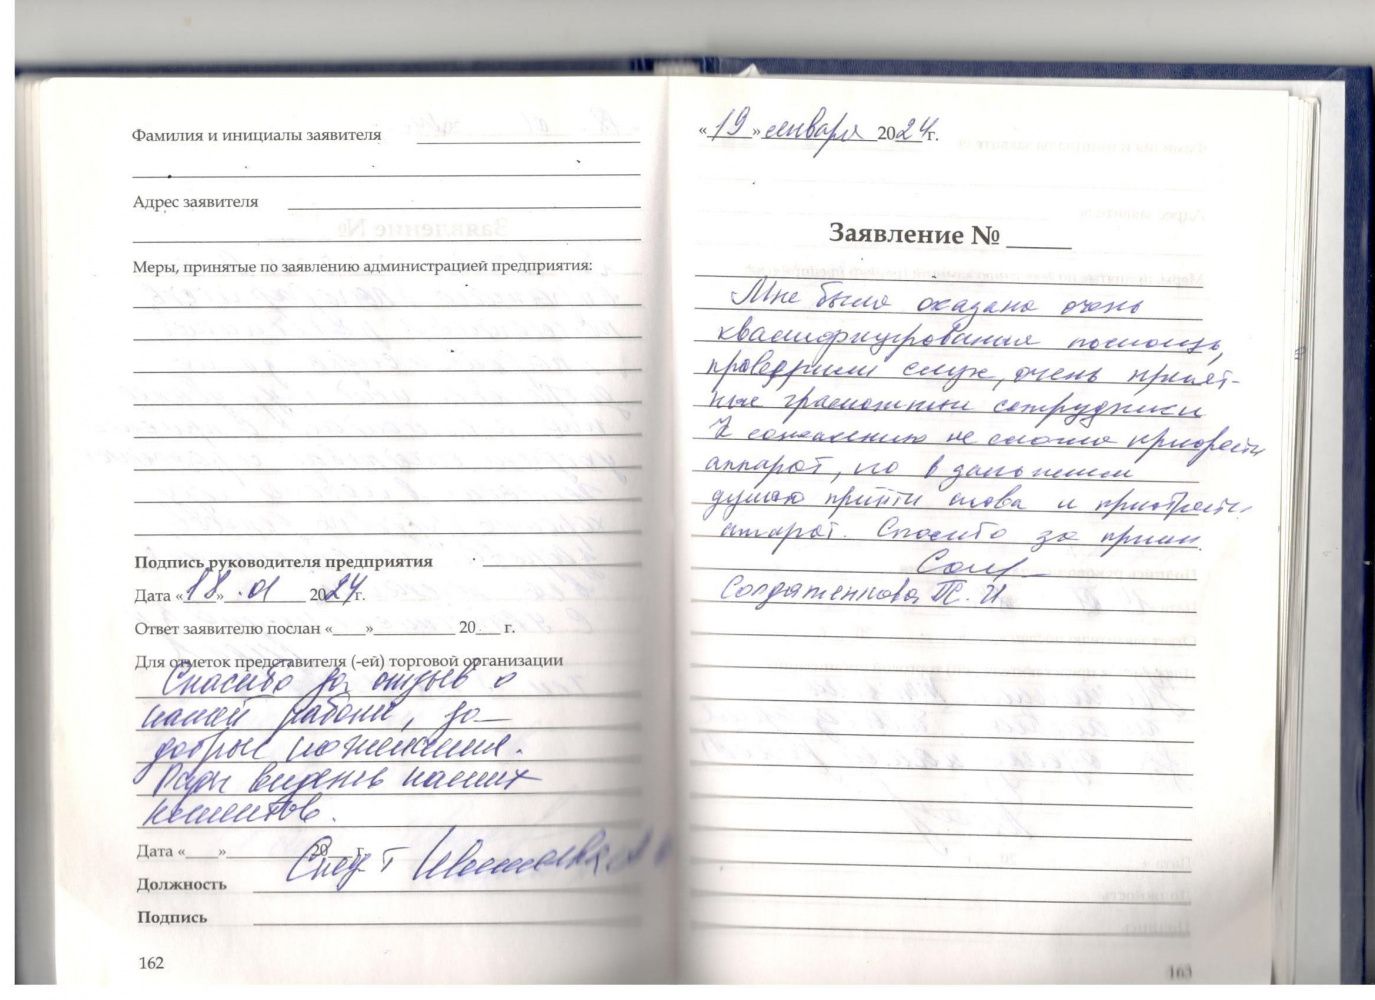 Фамилия и инициалы заявителя
Адрес заявителя
Меры, принятые по заявлению администрацией предприятия:
Подпись руководителя предприятия
Дата «18» .01 2024г.
Ответ заявителю послан «___»_________ 20___ г.
Для отметок представителя (-ей) торговой организации
Спасибо за отзыв о
нашей работе, за
добрые пожелания.
Рады видеть наших
клиентов.
Дата «___»_________ 20 г.
Спец Т
Должность
Подпись
162
«19» января 2024г.
Заявление № _____
Мне была оказана очень
квалифицированная помощь,
проверили слух, очень прият-
ные грамотные сотрудники
К сожалению не смогла приобрести
аппарат, но в дальнейшем
думаю прийти снова и приобрести
аппарат. Спасибо за прием.
Солдатенкова Т. И
163